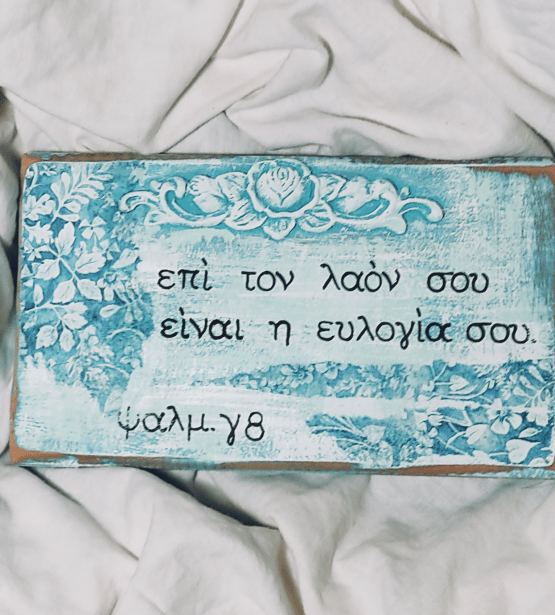 επὶ τον λαὸν σου
εὶναι η ευλογὶα σου.
ψαλμ.γ8